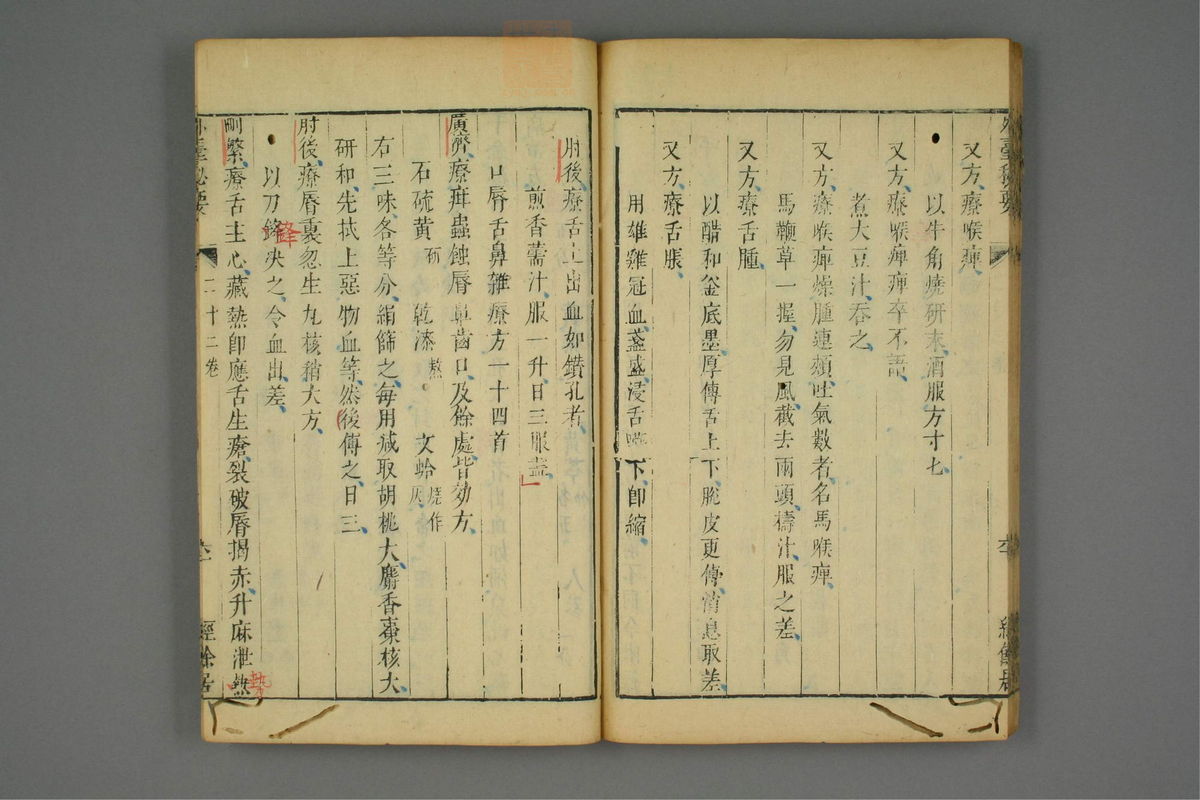 又方療喉痺
以牛角燒研末酒服方寸七
又方療喉痺痺卒不語
煮大豆汁吞之
又方療喉痺燥腫連頰吐氣數者名馬喉痺
馬鞭草一握勿見風截去兩頭擣汁服之差
又方療舌腫
以醋和釜底墨厚傅舌上下脫皮更傅消息取差
又方療舌脹
用雄雞冠血盞盛浸舌嚥下即縮
肘後療舌上出血如鑚孔者
煎香薷汁服一升日三服盡
口唇舌鼻雜療方一十四首
廣濟療疳蟲蝕唇鼻齒口及餘處皆効方
石硫黃研 乾漆熬 文蛤燒作灰
右三味各等分絹篩之每用減取胡桃大麝香棗核大
研和先拭上惡物血等然後傅之日三
肘後療唇裏忽生丸核稍大方
以刀鋒決之令血出差
刪繁療舌主心藏熱即應舌生瘡裂破唇揭赤升麻泄熱
外臺秘要
二十二卷
經餘居
鋒
熱